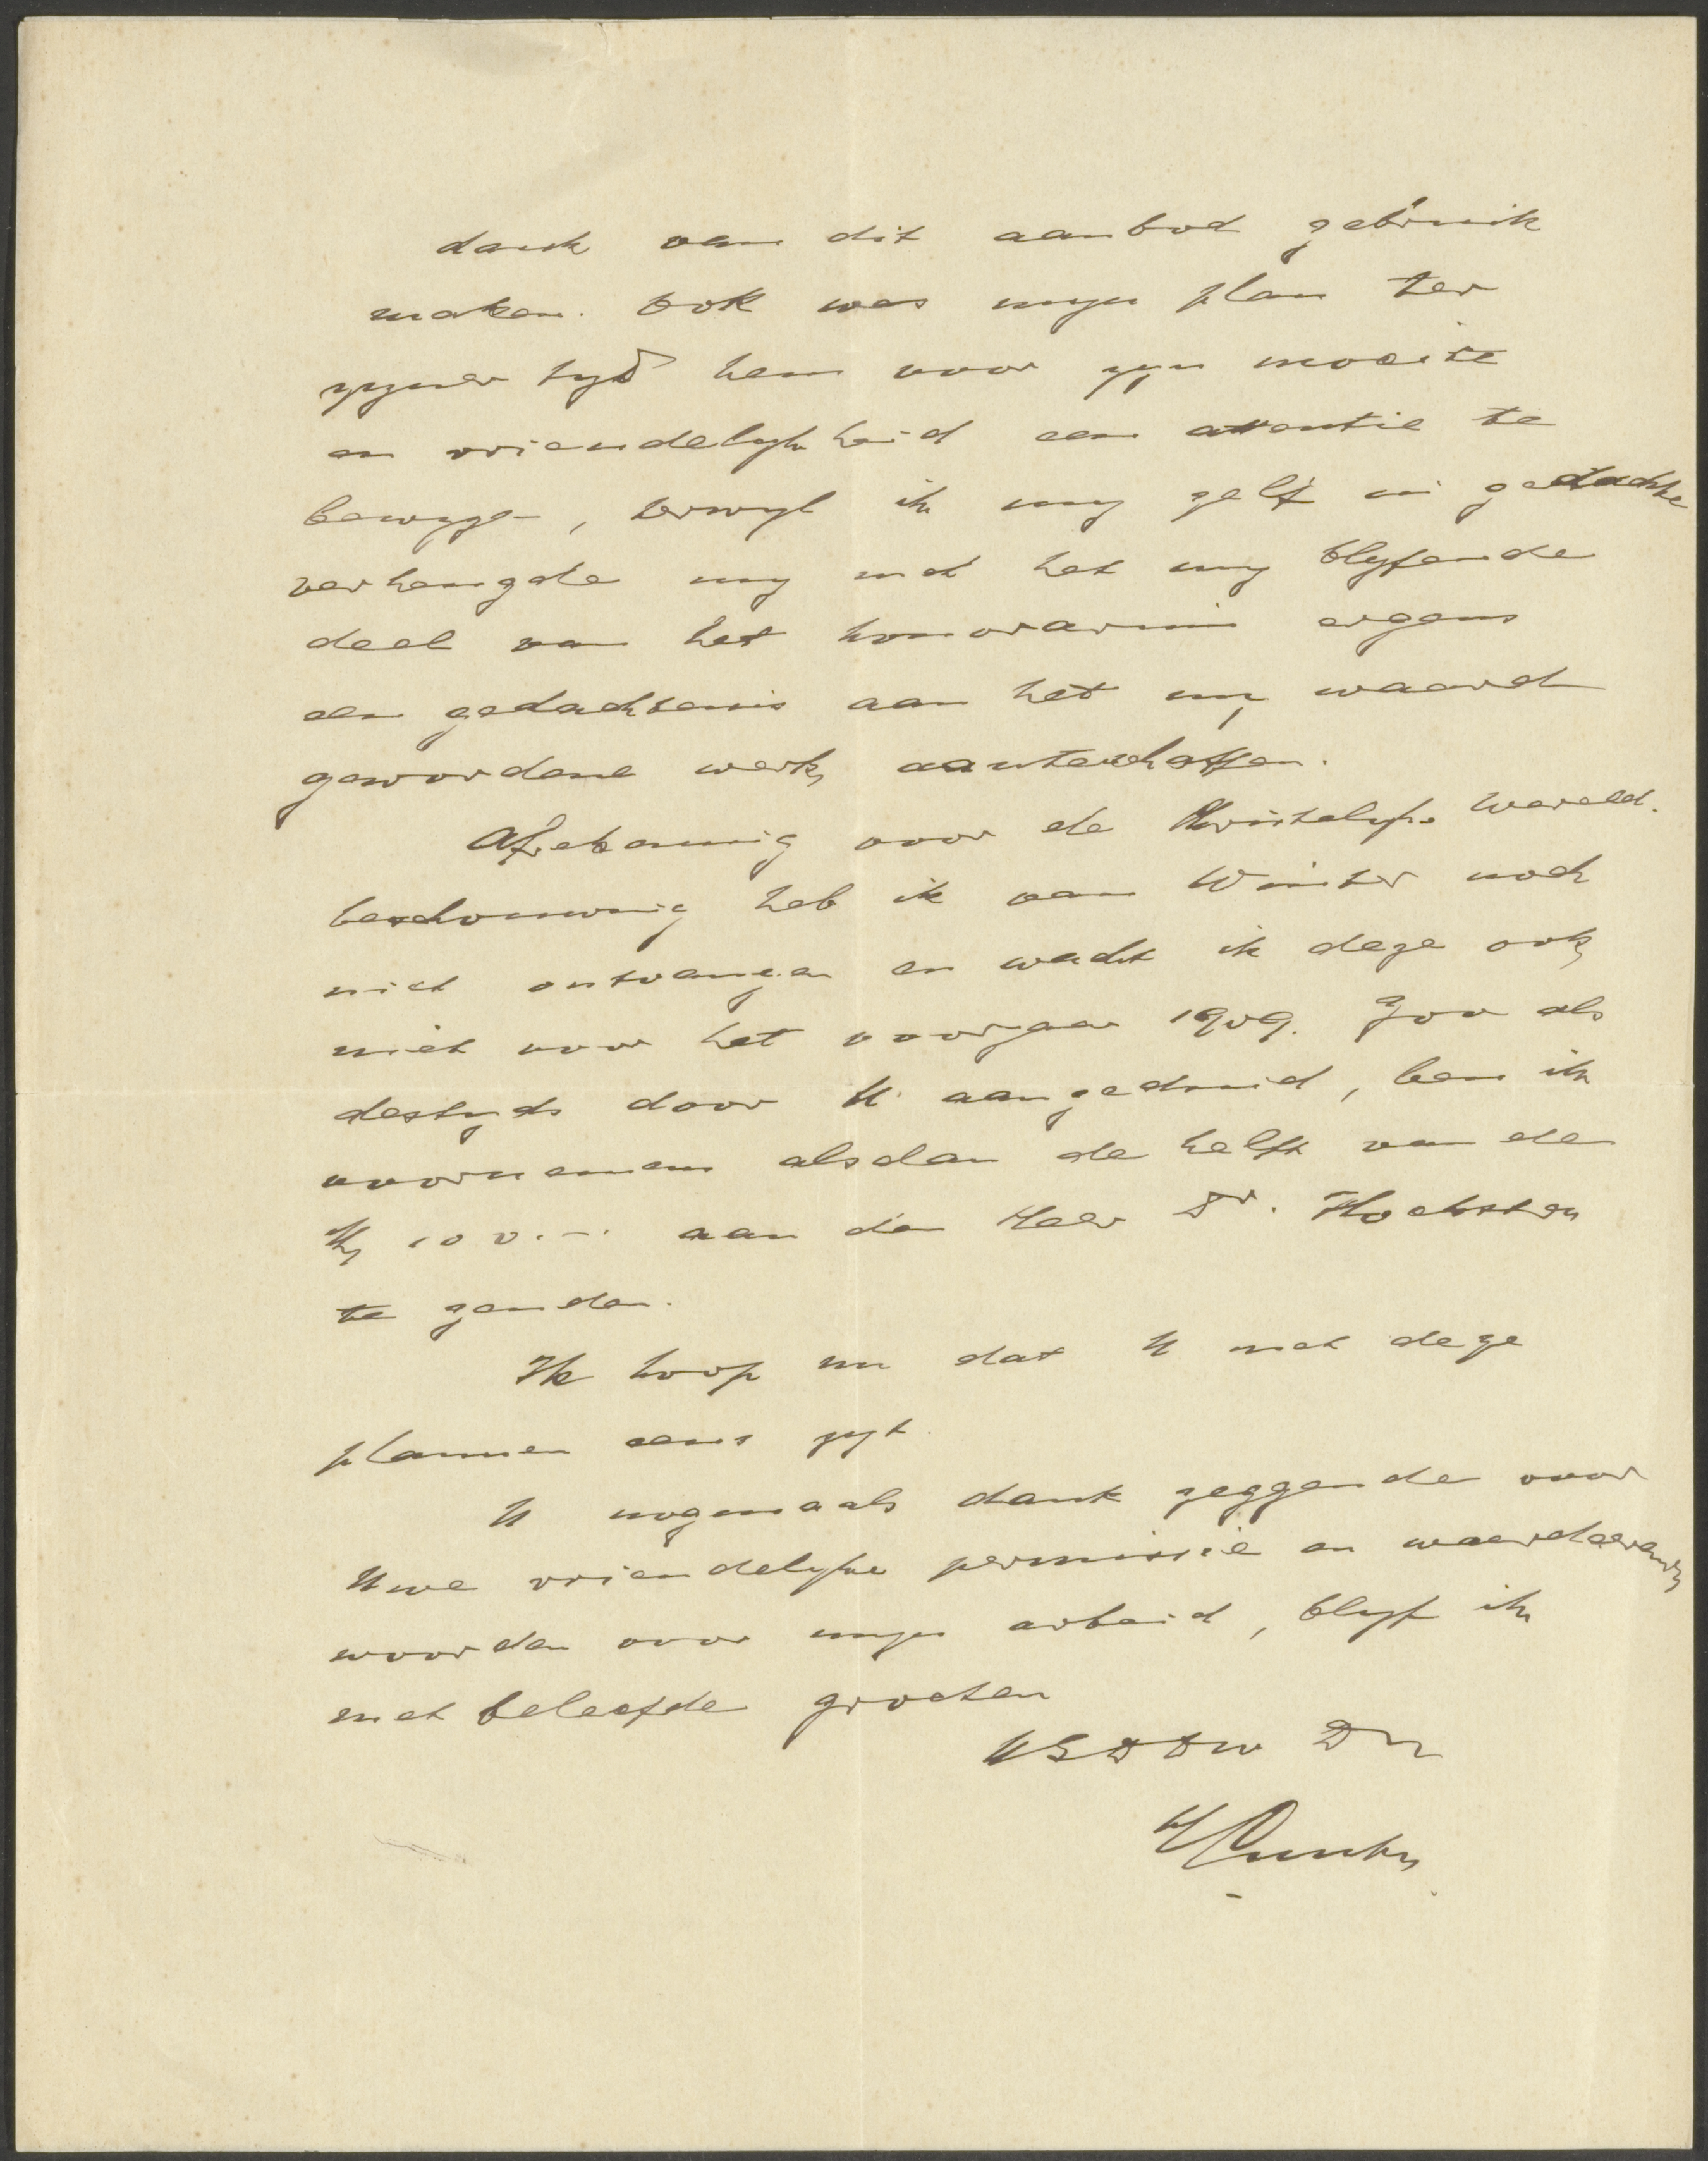 dank van dit aanbod gebruik
maken. Ook was mijn plan ter
zijner tijd hem voor zijn moeite
en vriendelijkheid een attentie te
bewijzen, terwijl ik mij zelf in gedachte
verheugde mij met het mij blijfende
deel van het honorarium ergens
een gedachtenis aan het mij waard
gewordene werk aanteschaffen.
Afrekening voor de Christelijke Wereld.
beschouwing heb ik van Winter noch
niet ontvangen en wacht ik deze ook
niet voor het voorjaar 1909. Zoo als
destijds door U aangeduid, ben ik
voornemens alsdan de helft van de
Mk 100.- aan den Heer Dr.
te zenden.
Ik hoop nu dat U met deze
plannen eens zijt.
U nogmaals dank zeggende voor
Uwe vriendelijke permissie en waardeerende
woorden over mijn arbeid, blijf ik
met beleefde groeten
UEDDW Dr